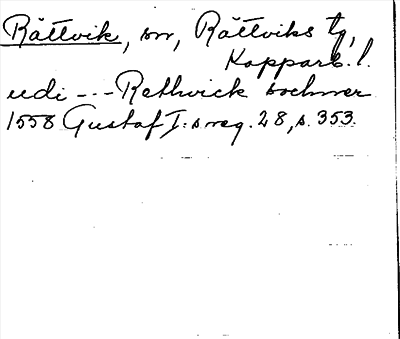 Rättvik, sn, Rättviks tg,
Kopparb. l.
udi --- Rethwick sochner
1558 Gustaf I:s reg. 28, s. 353.